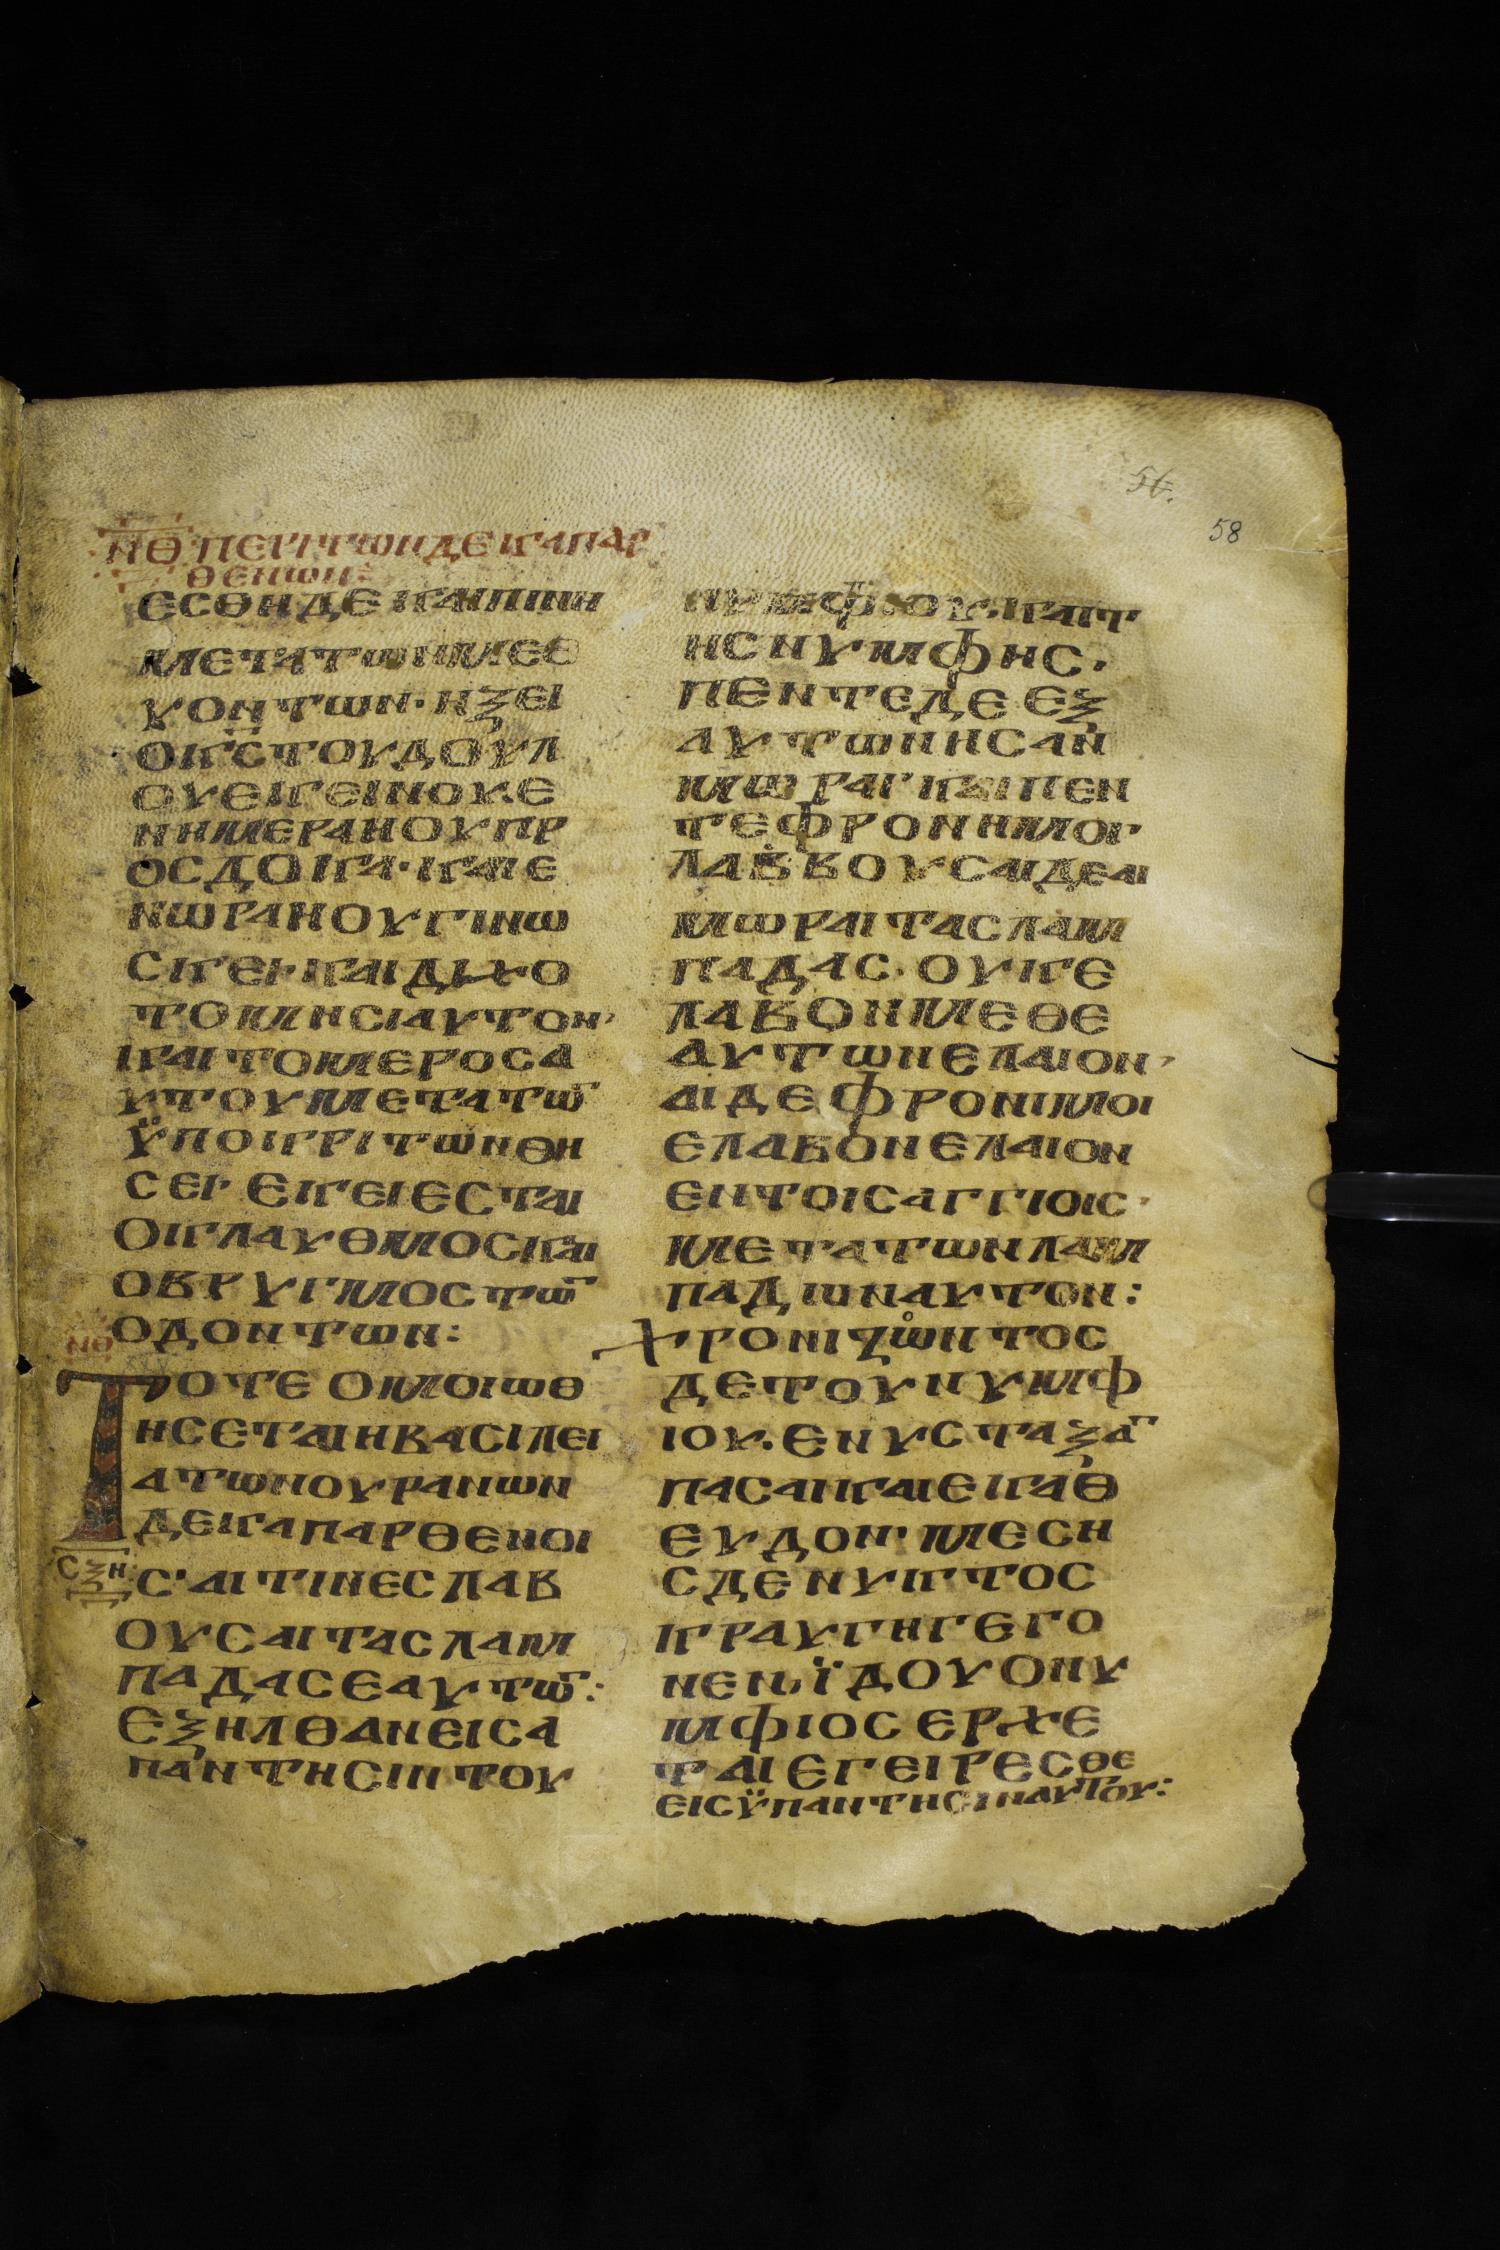 56.
58
ΝΘ ΠΕΡΙ ΤΩΝ ΔΕΚΑ ΠΑΡ
ΘΕΝΩΝ:
ΕΣΘΗΔΕΚΑΙΠΙΝΗ
ΜΕΤΑΤΩΝΜΕΘ
ΥΟΝΤΩΝ·ΗΞΕΙ
ΟΚ̅Σ̅ΤΟΥΔΟΥΛ
ΟΥΕΚΕΙΝΟΥ.Ε
ΝΗΜΕΡΑΗΟΥΠΡ
ΟΣΔΟΚΑ·ΚΑΙΕ
ΝΩΡΑΗΟΥΓΙΝΩ
ΣΚΕΙ·ΚΑΙΔΙΧΟ
ΤΟΜΗΣΙΑΥΤΟΝ·
ΚΑΙΤΟΜΕΡΟΣΑ
ΥΤΟΥΜΕΤΑΤΩ̅
ΫΠΟΚΡΙΤΩΝΘΗ
ΣΕΙ·ΕΚΕΙΕΣΤΑΙ
ΟΚΛΑΥΘΜΟΣΚΑΙ
ΟΒΡΥΓΜΟΣΤΩ̅
ΟΔΟΝΤΩΝ:
ΝΘ
ΤΟΤΕΟΜΟΙΩΘ
ΗΣΕΤΑΙΗΒΑΣΙΛΕΙ
ΑΤΩΝΟΥΡΑΝΩΝ
ΔΕΚΑΠΑΡΘΕΝΟΙ
ΣΞΗ
Σ·ΑΙΤΙΝΕΣΛΑΒ
ΟΥΣΑΙΤΑΣΛΑΜ
ΠΑΔΑΣΕΑΥΤΩ̅:
ΕΞΗΛΘΑΝΕΙΣΑ
ΠΑΝΤΗΣΙΝΤΟΥ
ΝΥΜΦΙΟΥ.ΚΑΙΤ
ΗΣΝΥΜΦΗΣ.
ΠΕΝΤΕΔΕΕΞ
ΑΥΤΩΝΗΣΑΝ
ΜΩΡΑΙ·ΚΑΙΠΕΝ
ΤΕΦΡΟΝΗΜΟΙ·
ΛΑΒΒΟΥΣΑΙΔΕΑΙ
ΜΩΡΑΙΤΑΣΛΑΜ
ΠΑΔΑΣ.ΟΥΚΕ
ΛΑΒΟΝΜΕΘΕ
ΑΥΤΩΝΕΛΑΙΟΝ·
ΑΙΔΕΦΡΟΝΙΜΟΙ
ΕΛΑΒΟΝΕΛΑΙΟΝ
ΕΝΤΟΙΣΑΓΓΙΟΙΣ·
ΜΕΤΑΤΩΝΛΑΜ
ΠΑΔΙΩΝΑΥΤΟΝ:
ΧΡΟΝΙΖΩΝΤΟΣ
ΔΕΤΟΥΝΥΜΦ
ΙΟΥ.ΕΝΥΣΤΑΞΑ̅
ΠΑΣΑΙΚΑΙΕΚΑΘ
ΕΥΔΟΝ·ΜΕΣΗ
ΣΔΕΝΥΚΤΟΣ
ΚΡΑΥΓΗΓΕΓΟ
ΝΕΝ,ΪΔΟΥΟΝΥ
ΜΦΙΟΣΕΡΧΕ
ΤΑΙΕΓΕΙΡΕΣΘΕ
ΕΙΣΫΠΑΝΤΗΣΙΝΑΥΤΟΥ: